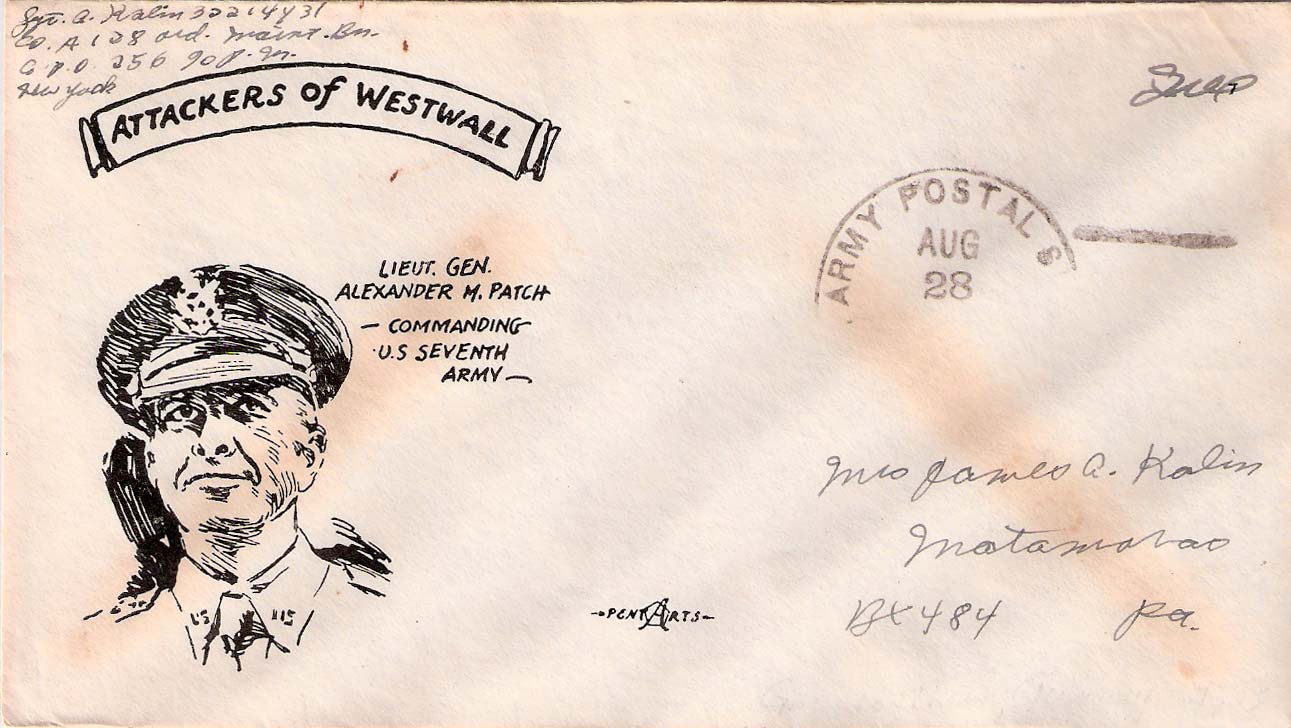 Sgt. A. Kalin 32214431
Co. A 128 ord. Maint. Bn.
A.P.O. 256 % P.M.
New York
ATTACKERS of WESTWALL
Free
ARMY POSTAL S
AUG
28
LIEUT. GEN.
ALEXANDER M. PATCH
— COMMANDING
U.S SEVENTH
ARMY —
US
US
Mrs James A. Kalin
Matamoras
BX 484 Pa.
PENT ARTS